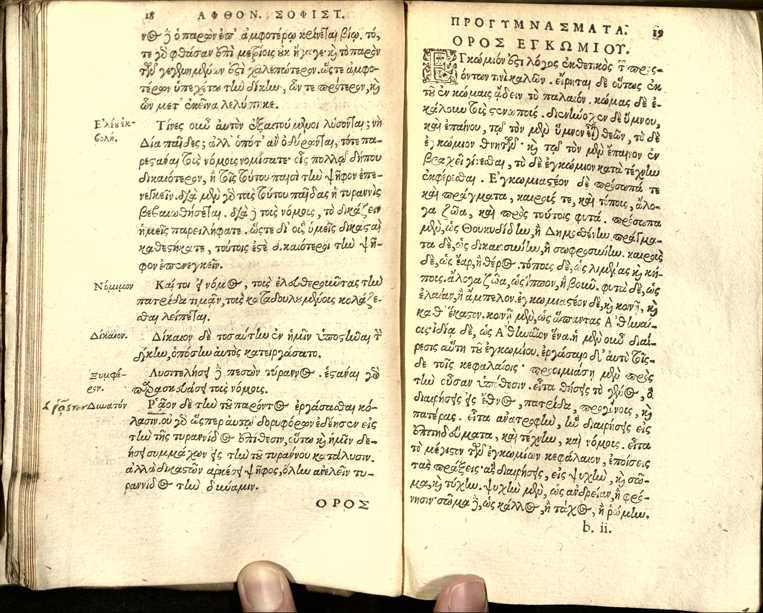 18 ΑΦΘΟΝ. ΣΟΦΙΣΤ.
Τίνες οὖν αὐτὸν ἐξαιτούμενοι λύσονται; νὴ
Δία παῖδες; ἀλλ' ὁπότ' ἂν ὀδύρωνται, τότε πα-
ρεῖναι τοὺς νόμους νομίσατε· οἷς πολλῷ δήπου
δικαιότερον, ἢ τοῖς τούτου παισὶ τὴν ψῆφον ἐπε-
νεγκεῖν. διὰ μὲν γὰρ τοὺς τούτου παῖδας ἡ τυραννὶς
βεβαιωθήσεται. διὰ δὲ τοὺς νόμους, τὸ δικάζειν
ἡμεῖς παρειλήφατε. ὥστε δι' οὓς ὑμεῖς δικασταὶ
καθεστήκατε, τούτοις ἐστὲ δικαιότεροι τὴν ψῆ-
φον ἐπενεγκεῖν.
Νόμιμον
Καίτοι εἰ νόμος, τοὺς ἐλευθερώσαντας τὴν
πατρίδα τιμᾶν, τοὺς καταδουλωμένους κολάζε-
σθαι λείπεται.
Δίκαιον.
Δίκαιον δὲ τοσαύτην ἐν ἡμῖν ὑποστῆναι τὴν
δίκην, ὁπόσην αὐτὸς κατειργάσατο.
Ξυμφέ-
ρον.
Λυσιτελήσει δὲ πεσὼν τύραννος. ἐστάναι γὰρ
παρασκευάσει τοὺς νόμους.
Δυνατόν
Ῥᾷον δὲ τὴν τοῦ παρόντος ἐργάσασθαι κό-
λασιν. οὐ γὰρ ὥσπερ αὐτῷ δορυφόρων ἐδέησεν εἰς
τὴν τῆς τυραννίδος ἐπίθεσιν, οὕτω καὶ ἡμῖν δε-
ήσει συμμάχων εἰς τὴν τοῦ τυράννου κατάλυσιν.
ἀλλὰ δικαστῶν ἀρκέσει ψῆφος, ὅλην ἀνελεῖν τυ-
ραννίδος τὴν δύναμιν.
ΟΡΟΣ
ΠΡΟΓΥΜΝΑΣΜΑΤΑ. 19
ΟΡΟΣ ΕΓΚΩΜΙΟΥ.
ΕΓκώμιόν ἐστι λόγος ἐκθετικὸς τῶν προς-
όντων τινὶ καλῶν. εἴρηται δὲ οὕτως ἐκ
τοῦ ἐν κώμαις ᾄδειν τὸ παλαιόν. κώμας δὲ ἐ-
κάλουν τοὺς στενωπούς. διενήνοχε δὲ ὕμνου,
καὶ ἐπαίνου, τῷ τὸν μὲν ὕμνον εἶναι θεῶν, τὸ δὲ
ἐγκώμιον θνητῶν. καὶ τῷ τὸν μὲν ἔπαινον ἐν
βραχεῖ γίνεσθαι, τὸ δὲ ἐγκώμιον κατὰ τέχνην
ἐκφέρεσθαι. Ἐγκωμιαστέον δὲ πρόσωπά τε
καὶ πράγματα, καιρούς τε, καὶ τόπους, ἄλο-
γα ζῶα, καὶ πρὸς τούτοις φυτά. πρόσωπα
μὲν, ὡς Θουκυδίδην, ἢ Δημοσθένην. πράγμα-
τα δὲ, ὡς δικαιοσύνην, ἢ σωφροσύνην. καιροὺς
δὲ, ὡς ἔαρ, ἢ θέρος. τόπους δὲ, ὡς λιμένας, καὶ κή-
πους. ἄλογα ζῶα, ὡς ἵππον, ἢ βοῦν. φυτὰ δὲ, ὡς
ἐλαίαν, ἢ ἄμπελον. ἐγκωμιαστέον δὲ, καὶ κοινῇ, καὶ
καθ' ἕκαστον. κοινῇ μὲν, ὡς ἅπαντας Ἀθηναί-
ους· ἰδίᾳ δὲ, ὡς Ἀθηναῖον ἕνα. ἡ μὲν οὖν διαί-
ρεσις αὕτη τοῦ ἐγκωμίου. ἐργάσαιο δ' αὐτὸ τοῖς-
δε τοῖς κεφαλαίοις· προοιμιάσῃ μὲν πρὸς
τὴν οὖσαν ὑπόθεσιν. εἶτα θήσεις τὸ γένος, ὃ
διαιρήσεις εἰς ἔθνος, πατρίδα, προγόνους, καὶ
πατέρας. εἶτα ἀνατροφὴν, ἣν διαιρήσεις εἰς
ἐπιτηδεύματα, καὶ τέχνην, καὶ νόμους. εἶτα
τὸ μέγιστον τῶν ἐγκωμίων κεφάλαιον, ἐποίσεις
τὰς πράξεις· ἃς διαιρήσεις, εἰς ψυχὴν, καὶ σῶ-
μα, καὶ τύχην. ψυχὴν μὲν, ὡς ἀνδρείαν, ἢ φρό-
νησιν· σῶμα δὲ, ὡς κάλλος, ἢ τάχος, ἢ ῥώμην.
b. ii.